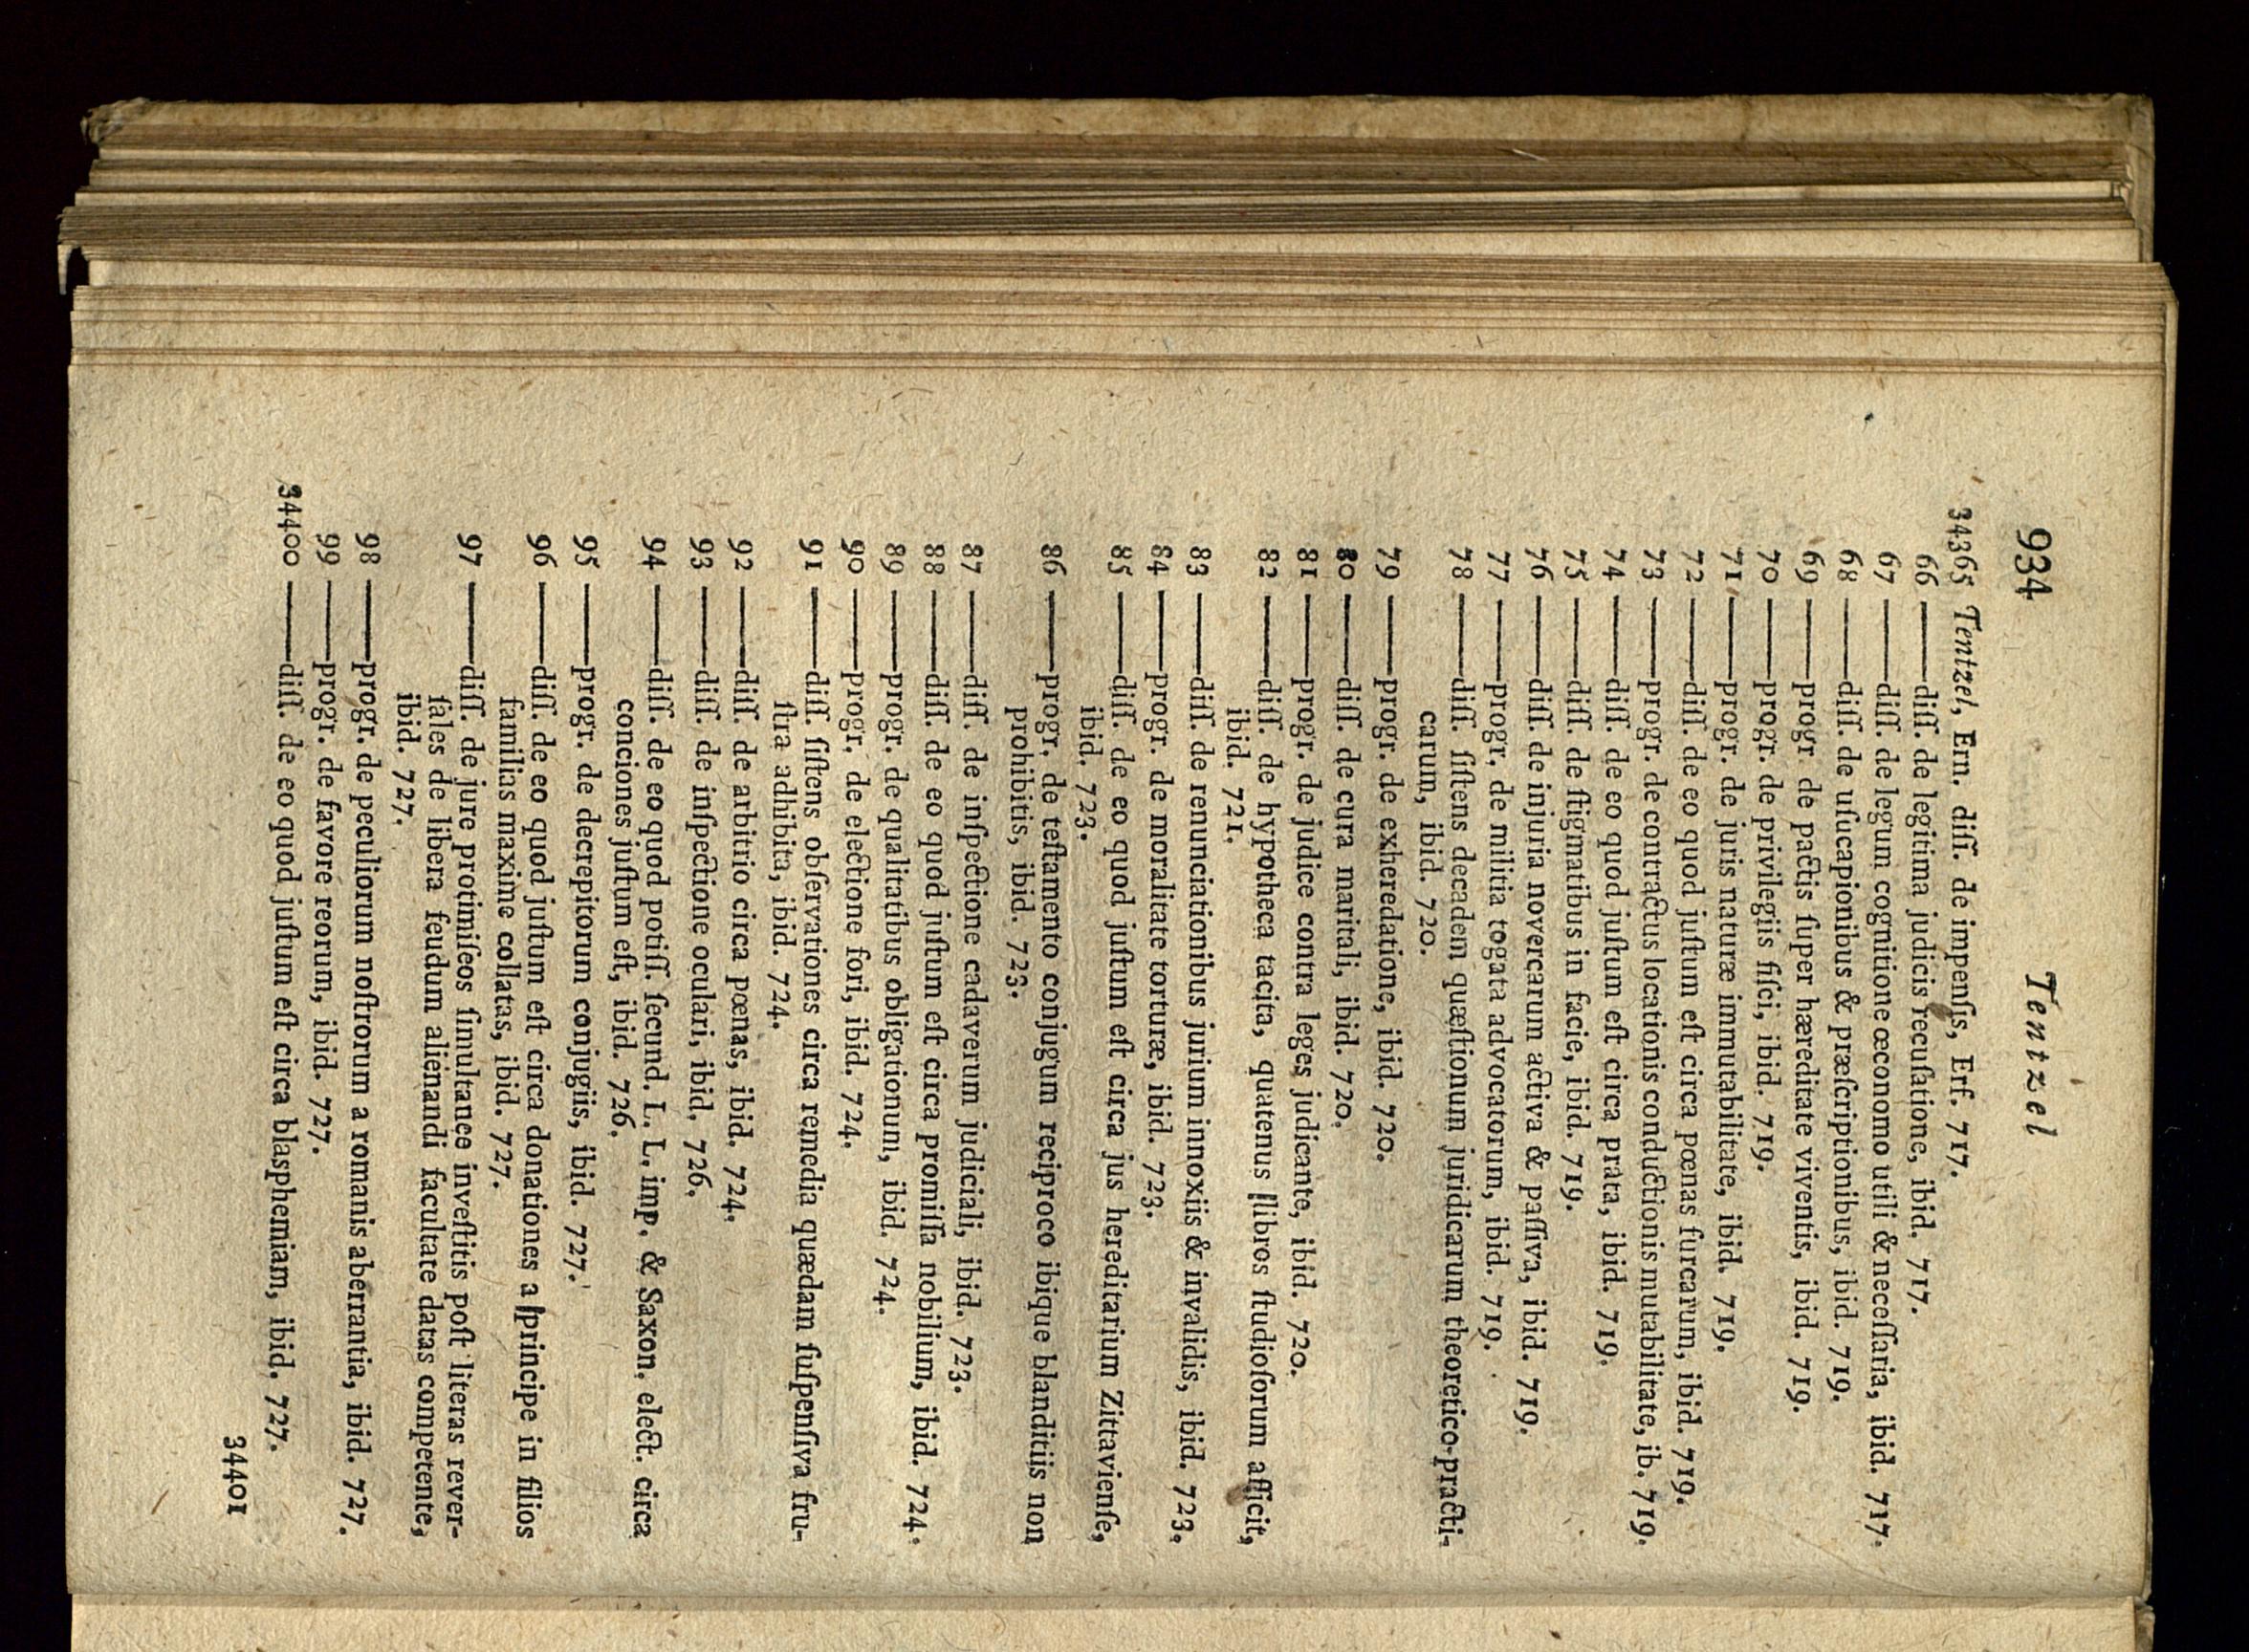 934 Tentzel
34365 Tentzel, Ern. diſſ. de impenſis, Erf. 717.
66 ——diſſ. de legitima judicis recuſatione, ibid. 717.
67 ——diſſ. de legum cognitione œconomo utili & neceſſaria, ibid. 717.
68 ——diſſ. de uſucapionibus & præſcriptionibus, ibid. 719.
69 ——progr. de pactis ſuper hæreditate viventis, ibid. 719.
70 ——progr. de privilegiis fiſci, ibid. 719.
71 ——progr. de juris naturæ immutabilitate, ibid. 719.
72 ——diſſ. de eo quod juſtum eſt circa pœnas furcarum, ibid. 719.
73 ——progr. de contractus locationis conductionis mutabilitate, ib. 719.
74 ——diſſ. de eo quod juſtum eſt circa prata, ibid. 719.
75 ——diſſ. de ſtigmatibus in facie, ibid. 719.
76 ——diſſ. de injuria novercarum activa & paſſiva, ibid. 719.
77 ——progr. de militia togata advocatorum, ibid. 719.
78 ——diſſ. ſiſtens decadem quæſtionum juridicarum theoretico-practi-
carum, ibid. 720.
79 ——progr. de exheredatione, ibid. 720.
80 ——diſſ. de cura maritali, ibid. 720.
81 ——progr. de judice contra leges judicante, ibid. 720.
82 ——diſſ. de hypotheca tacita, quatenus libros ſtudioſorum afficit,
ibid. 721.
83 ——diſſ. de renunciationibus jurium innoxiis & invalidis, ibid. 723.
84 ——progr. de moralitate torturæ, ibid. 723.
85 ——diſſ. de eo quod juſtum eſt circa jus hereditarium Zittavienſe,
ibid. 723.
86 ——progr. de teſtamento conjugum reciproco ibique blanditiis non
prohibitis, ibid. 723.
87 ——diſſ. de inſpectione cadaverum judiciali, ibid. 723.
88 ——diſſ. de eo quod juſtum eſt circa promiſſa nobilium, ibid. 724.
89 ——progr. de qualitatibus obligationum, ibid. 724.
90 ——progr. de electione fori, ibid. 724.
91 ——diſſ. ſiſtens obſervationes circa remedia quædam ſuſpenſiva fru-
ſtra adhibita, ibid. 724.
92 ——diſſ. de arbitrio circa pœnas, ibid. 724.
93 ——diſſ. de inſpectione oculari, ibid. 726.
94 ——diſſ. de eo quod potiſſ. ſecund. L. L. imp. & Saxon. elect. circa
conciones juſtum eſt, ibid. 726.
95 ——progr. de decrepitorum conjugiis, ibid. 727.
96 ——diſſ. de eo quod juſtum eſt circa donationes a principe in filios
familias maxime collatas, ibid. 727.
97 ——diſſ. de jure protimiſeos ſimultanee inveſtitis poſt literas rever-
ſales de libera feudum alienandi facultate datas competente,
ibid. 727.
98 ——progr. de peculiorum noſtrorum a romanis aberrantia, ibid. 727.
99 ——progr. de favore reorum, ibid. 727.
34400 ——diſſ. de eo quod juſtum eſt circa blasphemiam, ibid. 727.
34401